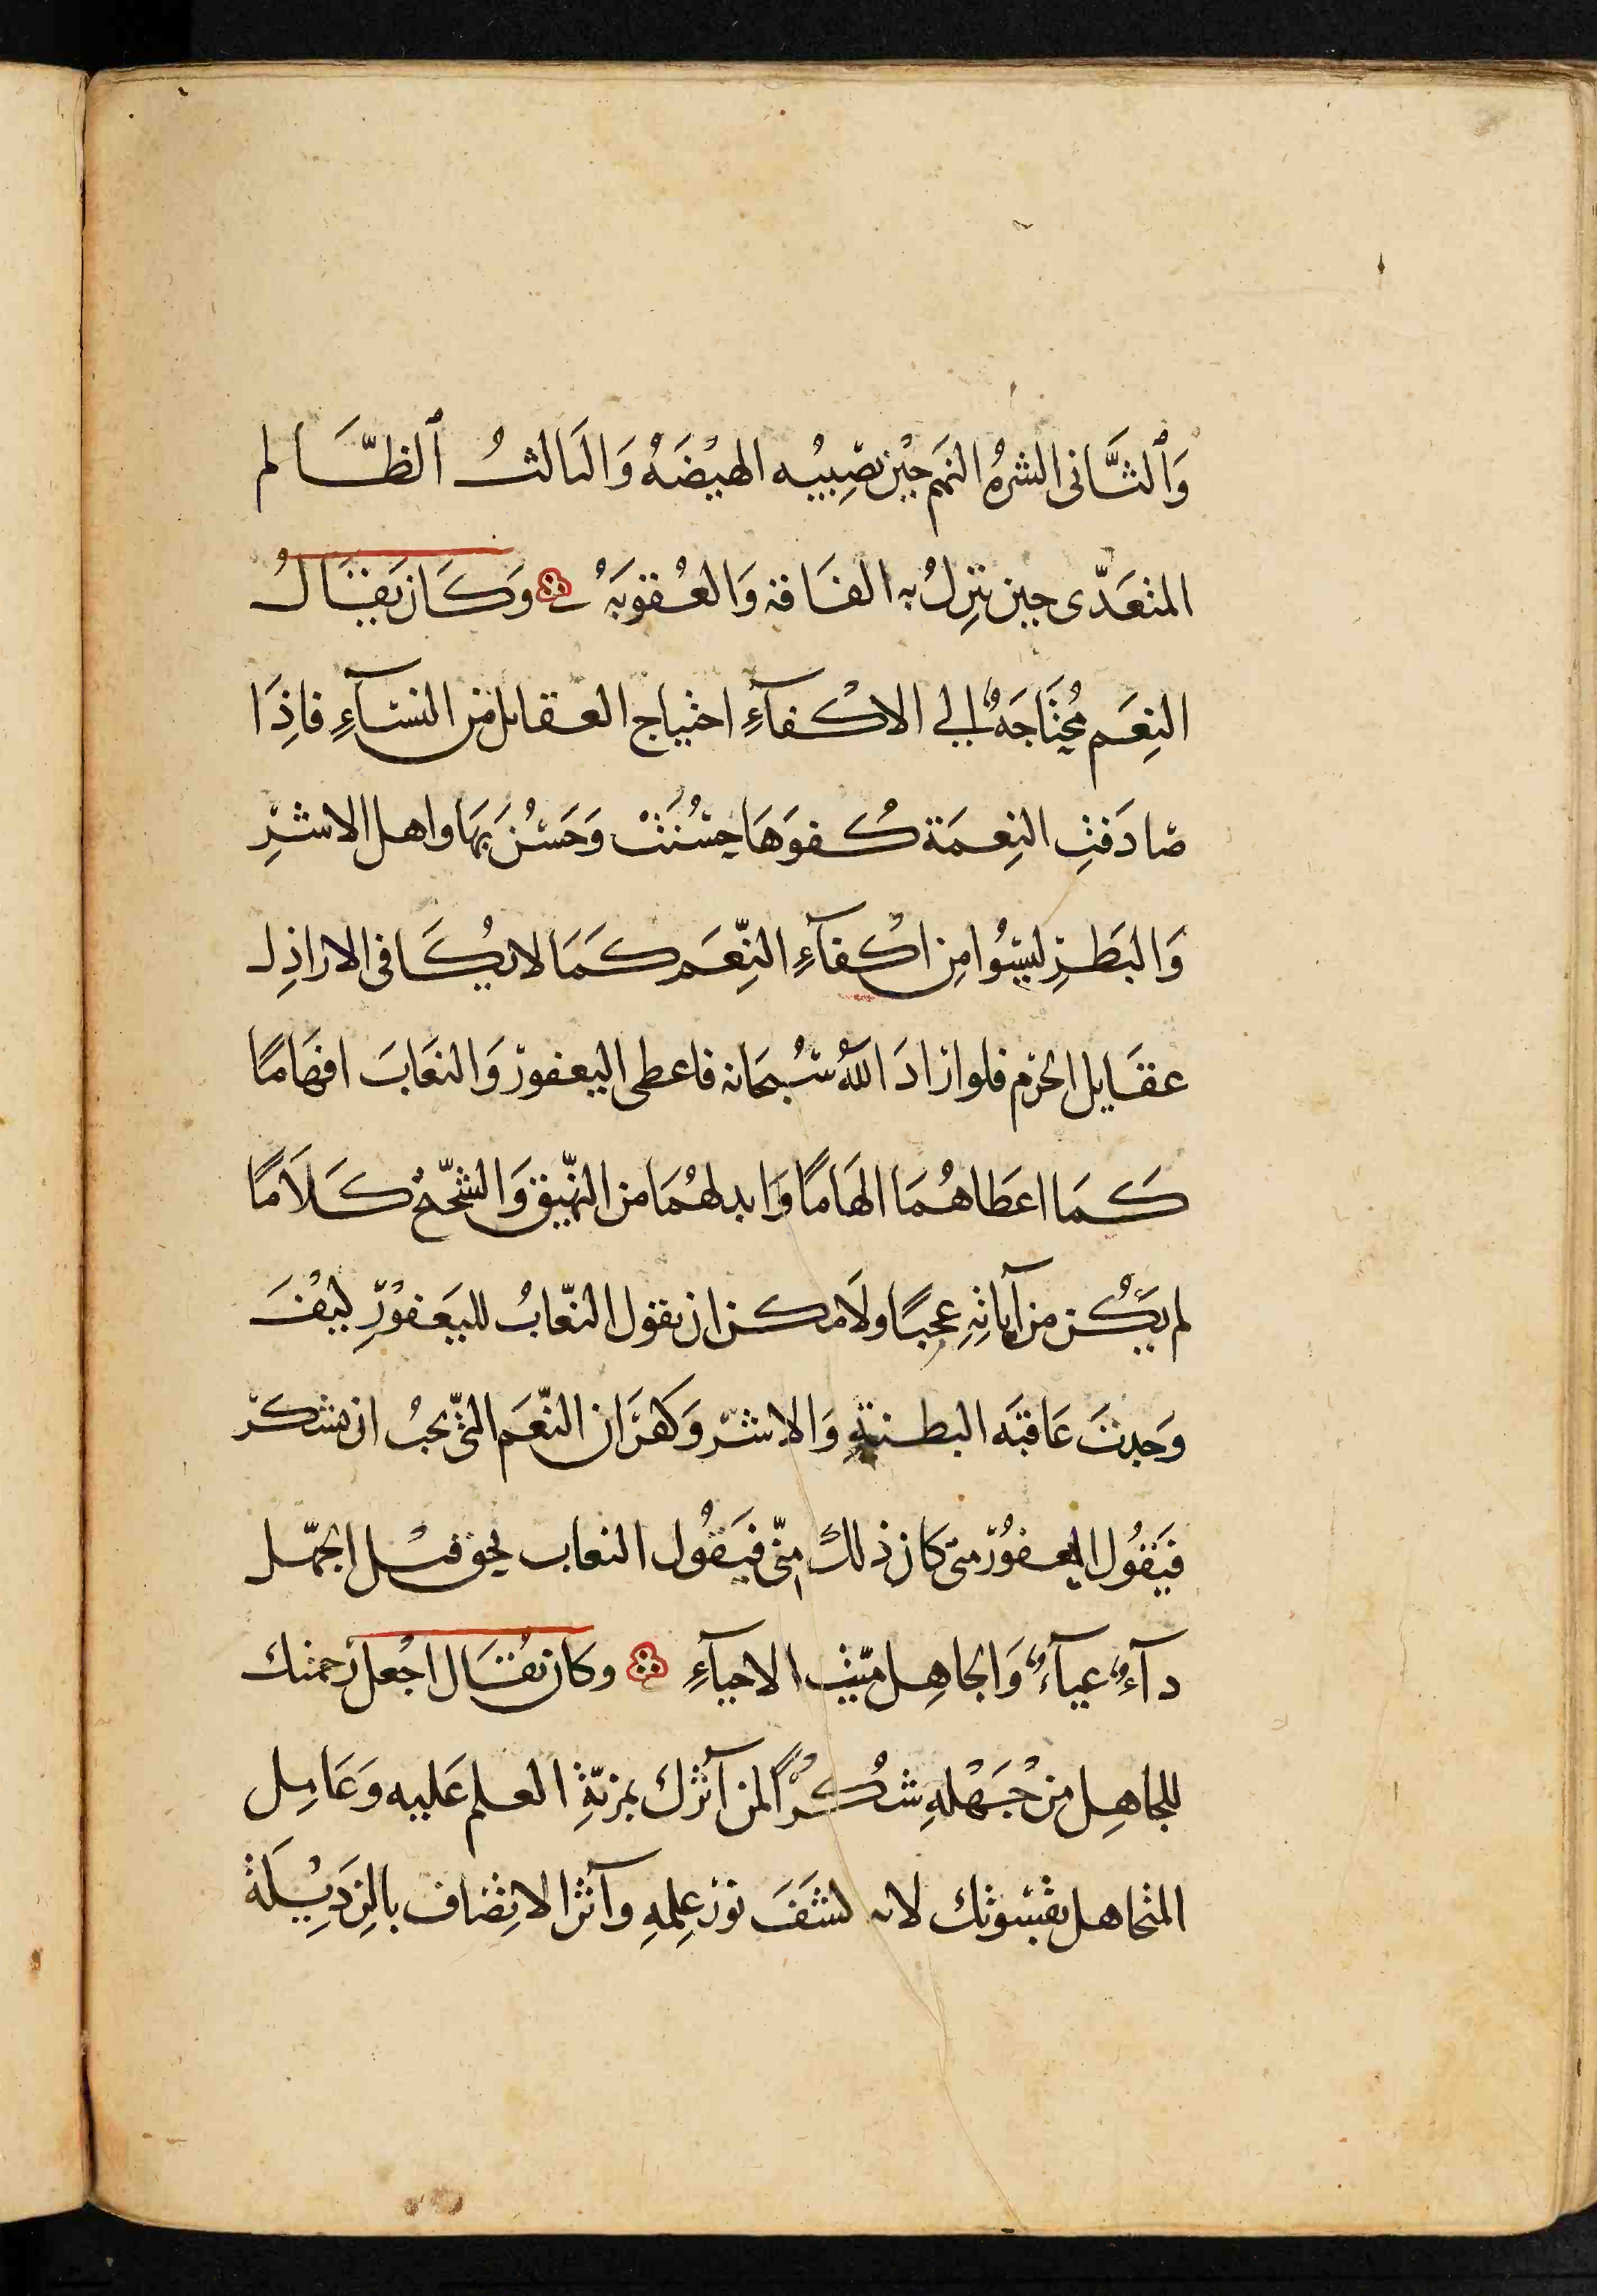 وَٱلثَّانى الشرهُ النهم حِيْن تصِيبُه الهيْضَهُ وَالثالثُ ٱلظَّالم
المتعَدّى حِين تنزِلُ به الفَاقه وَالعُقوبَهُ وَكَان يقَالُ
النِعَم مُحْتَاجَهٌ الي الاكْفآءِ احتياج العقايل من النسآءِ فاذَا
صادَفتِ النِعمَة كُفوَهَا حسُنَتْ وَحَسُنَ بهَا واهل الاشرِ
وَالبَطرِ ليسُوا مِن اكْفآءِ النِّعَم كمَا لا يكَافى الاراذِل
عقَايل الحرَم فلو ارَادَ اللّٰهُ سُبحَانه فاعطى اليعفورَ وَالنعَابَ افهَامًا
كمَا اعطَاهُمَا الهَامًا وَابدلهُمَا من النّهيق وَالشّحّج كَلَامًا
لم يَكُن من آياتِهِ عجبًا ولَامكن ان يقول النعّابُ لليَعفوْرِ كيْفَ
وَجدتَ عَاقبَه البطنهِ وَالاشر وَكفرَان النّعَم التّى يجبُ ان تشكرَ
فيَقُول اليعفوُر متى كان ذلك منّى فيَقُول النعاب بحق قيْل الجهْل
دآءٌ عيآءٌ وَالجاهِل ميّت الاحيآءِ وكان يُقَال اجْعل رَحمتك
للجاهِل من جَهْلهِ شكْرًا لمن آثرك بمزيّةِ العلم عَليه وَعَامِل
المتجاهل بقسوتك لانه كشَفَ نورَ عِلمهِ وآثر الاتِصَاف بالرَذِيْلَة